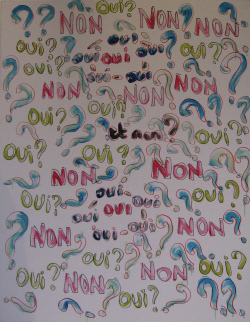 ? ? NON ? NON? NON
OUI? OUI? oui OUI?
oui oui oui
OUI? oui - oui
NON NON NON
OUI? OUI? OUI?
et non?
OUI? OUI?
NON NON
OUI? oui OUI?
oui oui oui
NON oui - oui NON
OUI? OUI? OUI?
NON NON
OUI? OUI?